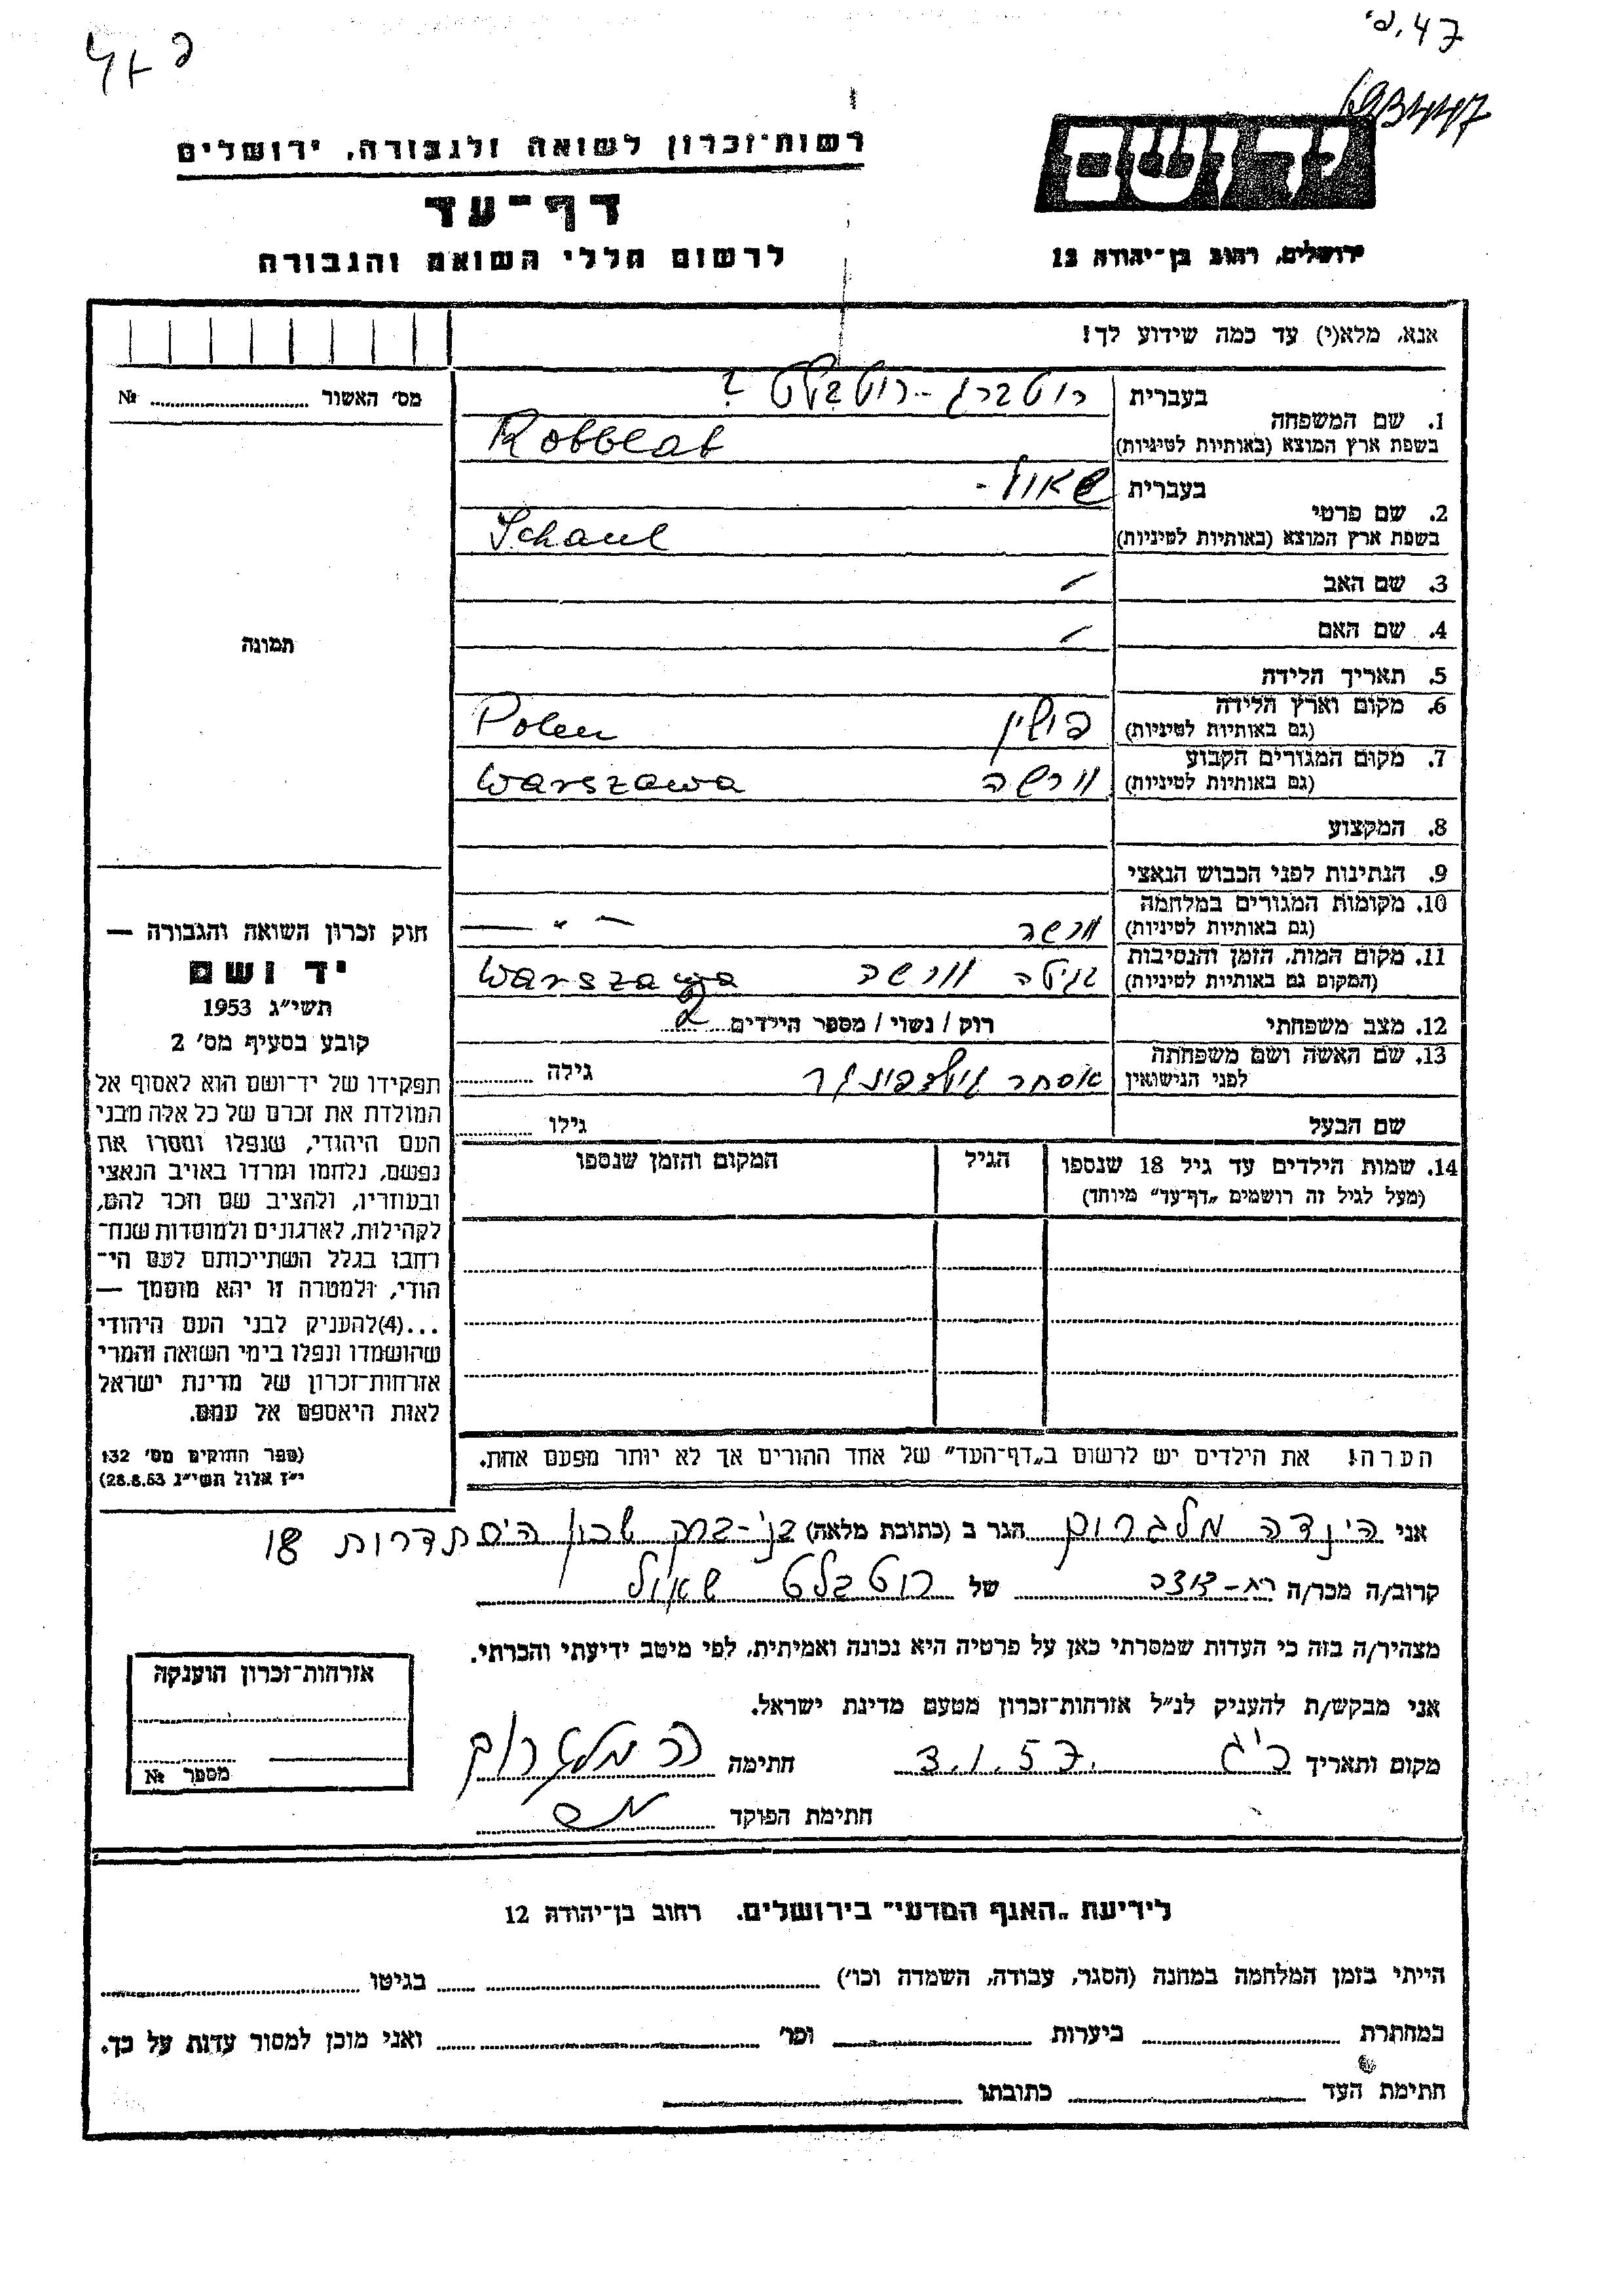 רשות־זכרון לשואה ולגבורה, ירושלים
דף־עד
לרשום חללי השואה והגבורה
יד ושם
ירושלים, רחוב בן־יהודה 12
אנא, מלא(י) עד כמה שידוע לך!
מס׳ האשור № 
תמונה
בעברית רוטברג - רוטבלט ?
1. שם המשפחה
בשפת ארץ המוצא (באותיות לטיניות) Rotblat
בעברית שאול -
2. שם פרטי
בשפת ארץ המוצא (באותיות לטיניות) Schaul
3. שם האב
4. שם האם
5. תאריך הלידה
6. מקום וארץ הלידה
(גם באותיות לטיניות) פולין Polen
7. מקום המגורים הקבוע
(גם באותיות לטיניות) ורשה Warszawa
8. המקצוע
9. הנתינות לפני הכבוש הנאצי
10. מקומות המגורים במלחמה
(גם באותיות לטיניות) ורשה — " —
11. מקום המות, הזמן והנסיבות
(המקום גם באותיות לטיניות) ורשה Warszawa
12. מצב משפחתי רוק / נשוי / מספר הילדים 2
13. שם האשה ושם משפחתה
לפני הנישואין אסתר גילה
שם הבעל גילו
14. שמות הילדים עד גיל 18 שנספו הגיל המקום והזמן שנספו
(מעל לגיל זה רושמים „דף־עד״ מיוחד)
הערה: את הילדים יש לרשום ב„דף־העד״ של אחד ההורים אך לא יותר מפעם אחת.
חוק זכרון השואה והגבורה —
יד ושם
תשי״ג 1953
קובע בסעיף מס׳ 2
תפקידו של יד־ושם הוא לאסוף אל
המולדת את זכרם של כל אלה מבני
העם היהודי, שנפלו ומסרו את
נפשם, נלחמו ומרדו באויב הנאצי
ובעוזריו, ולהציב שם וזכר להם,
לקהילות, לארגונים ולמוסדות שנח־
רחבו בגלל השתייכותם לעם הי־
הודי, ולמטרה זו יהא מוסמך —
...(4)להעניק לבני העם היהודי
שהושמדו ונפלו בימי השואה והמרי
אזרחות־זכרון של מדינת ישראל
לאות היאספם אל עמם.
(ספר החוקים מס׳ 132
י״ז אלול תשי״ג 28.8.53)
אני הינדה מלגרום הגר ב (כתובת מלאה) בני-ברק שכון היסתדרות 18
קרוב/ה מכר/ה של רוטבלט שאול
מצהיר/ה בזה כי העדות שמסרתי כאן על פרטיה היא נכונה ואמיתית, לפי מיטב ידיעתי והכרתי.
אני מבקש/ת להעניק לנ״ל אזרחות־זכרון מטעם מדינת ישראל.
מקום ותאריך 3.1.57. חתימה ה מלגרום
חתימת הפוקד
אזרחות־זכרון הוענקה
מספר №
לידיעת „האגף המדעי״ בירושלים. רחוב בן־יהודה 12
הייתי בזמן המלחמה במחנה (הסגר, עבודה, השמדה וכו׳) בגיטו
במחתרת ביערות וכו׳ ואני מוכן למסור עדות על כך.
חתימת העד כתובתו